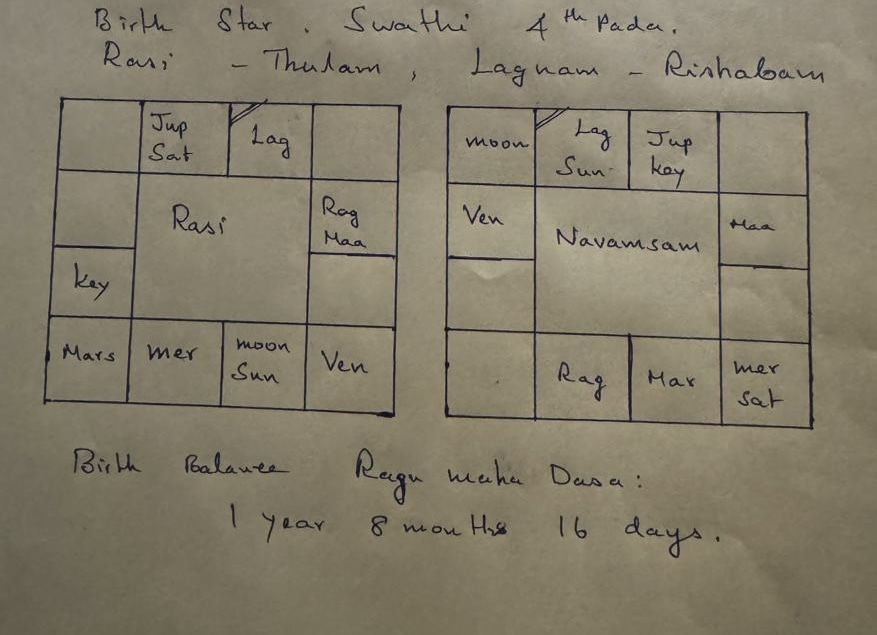 Birth Star. Swathi 4th Pada.
Rasi - Thulam, Lagnam - Rishabam
Jup
Sat
Lag
Rasi
Rag
Maa
Key
Mars
mer
moon
Sun
Ven
moon
Lag
Sun
Jup
Key
Ven
Navamsam
Maa
Rag
Mar
mer
sat
Birth Balance Ragu maha Dasa:
1 year 8 months 16 days.